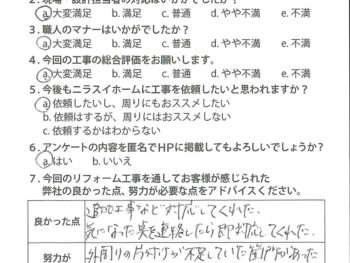 2. 現場・設計担当者の対応はいかがでしたか?
a.大変満足 b.満足 c.普通 d.やや不満 e.不満
3.職人のマナーはいかがでしたか?
a.大変満足 b.満足 c.普通 d.やや不満 e.不満
4.今回の工事の総合評価をお願いします。
a.大変満足 b.満足 c.普通 d.やや不満 e.不満
5.今後もニラスイホームに工事を依頼したいと思われますか?
a.依頼したいし、周りにもおススメしたい
b.依頼はするが、周りにはおススメしない
c.依頼するかはわからない
6.アンケートの内容を匿名でHPに掲載してもよろしいでしょうか?
a.はい b.いいえ
7.今回のリフォーム工事を通してお客様が感じられた
弊社の良かった点、努力が必要な点をアドバイスください。
良かった点
追加工事など対応してくれた。
気になった点を連絡したら即対応してくれた。
努力が
外周りの片付けが不足していた箇所があった